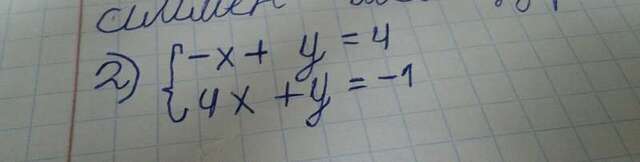 2) { -x + y = 4
4x + y = -1